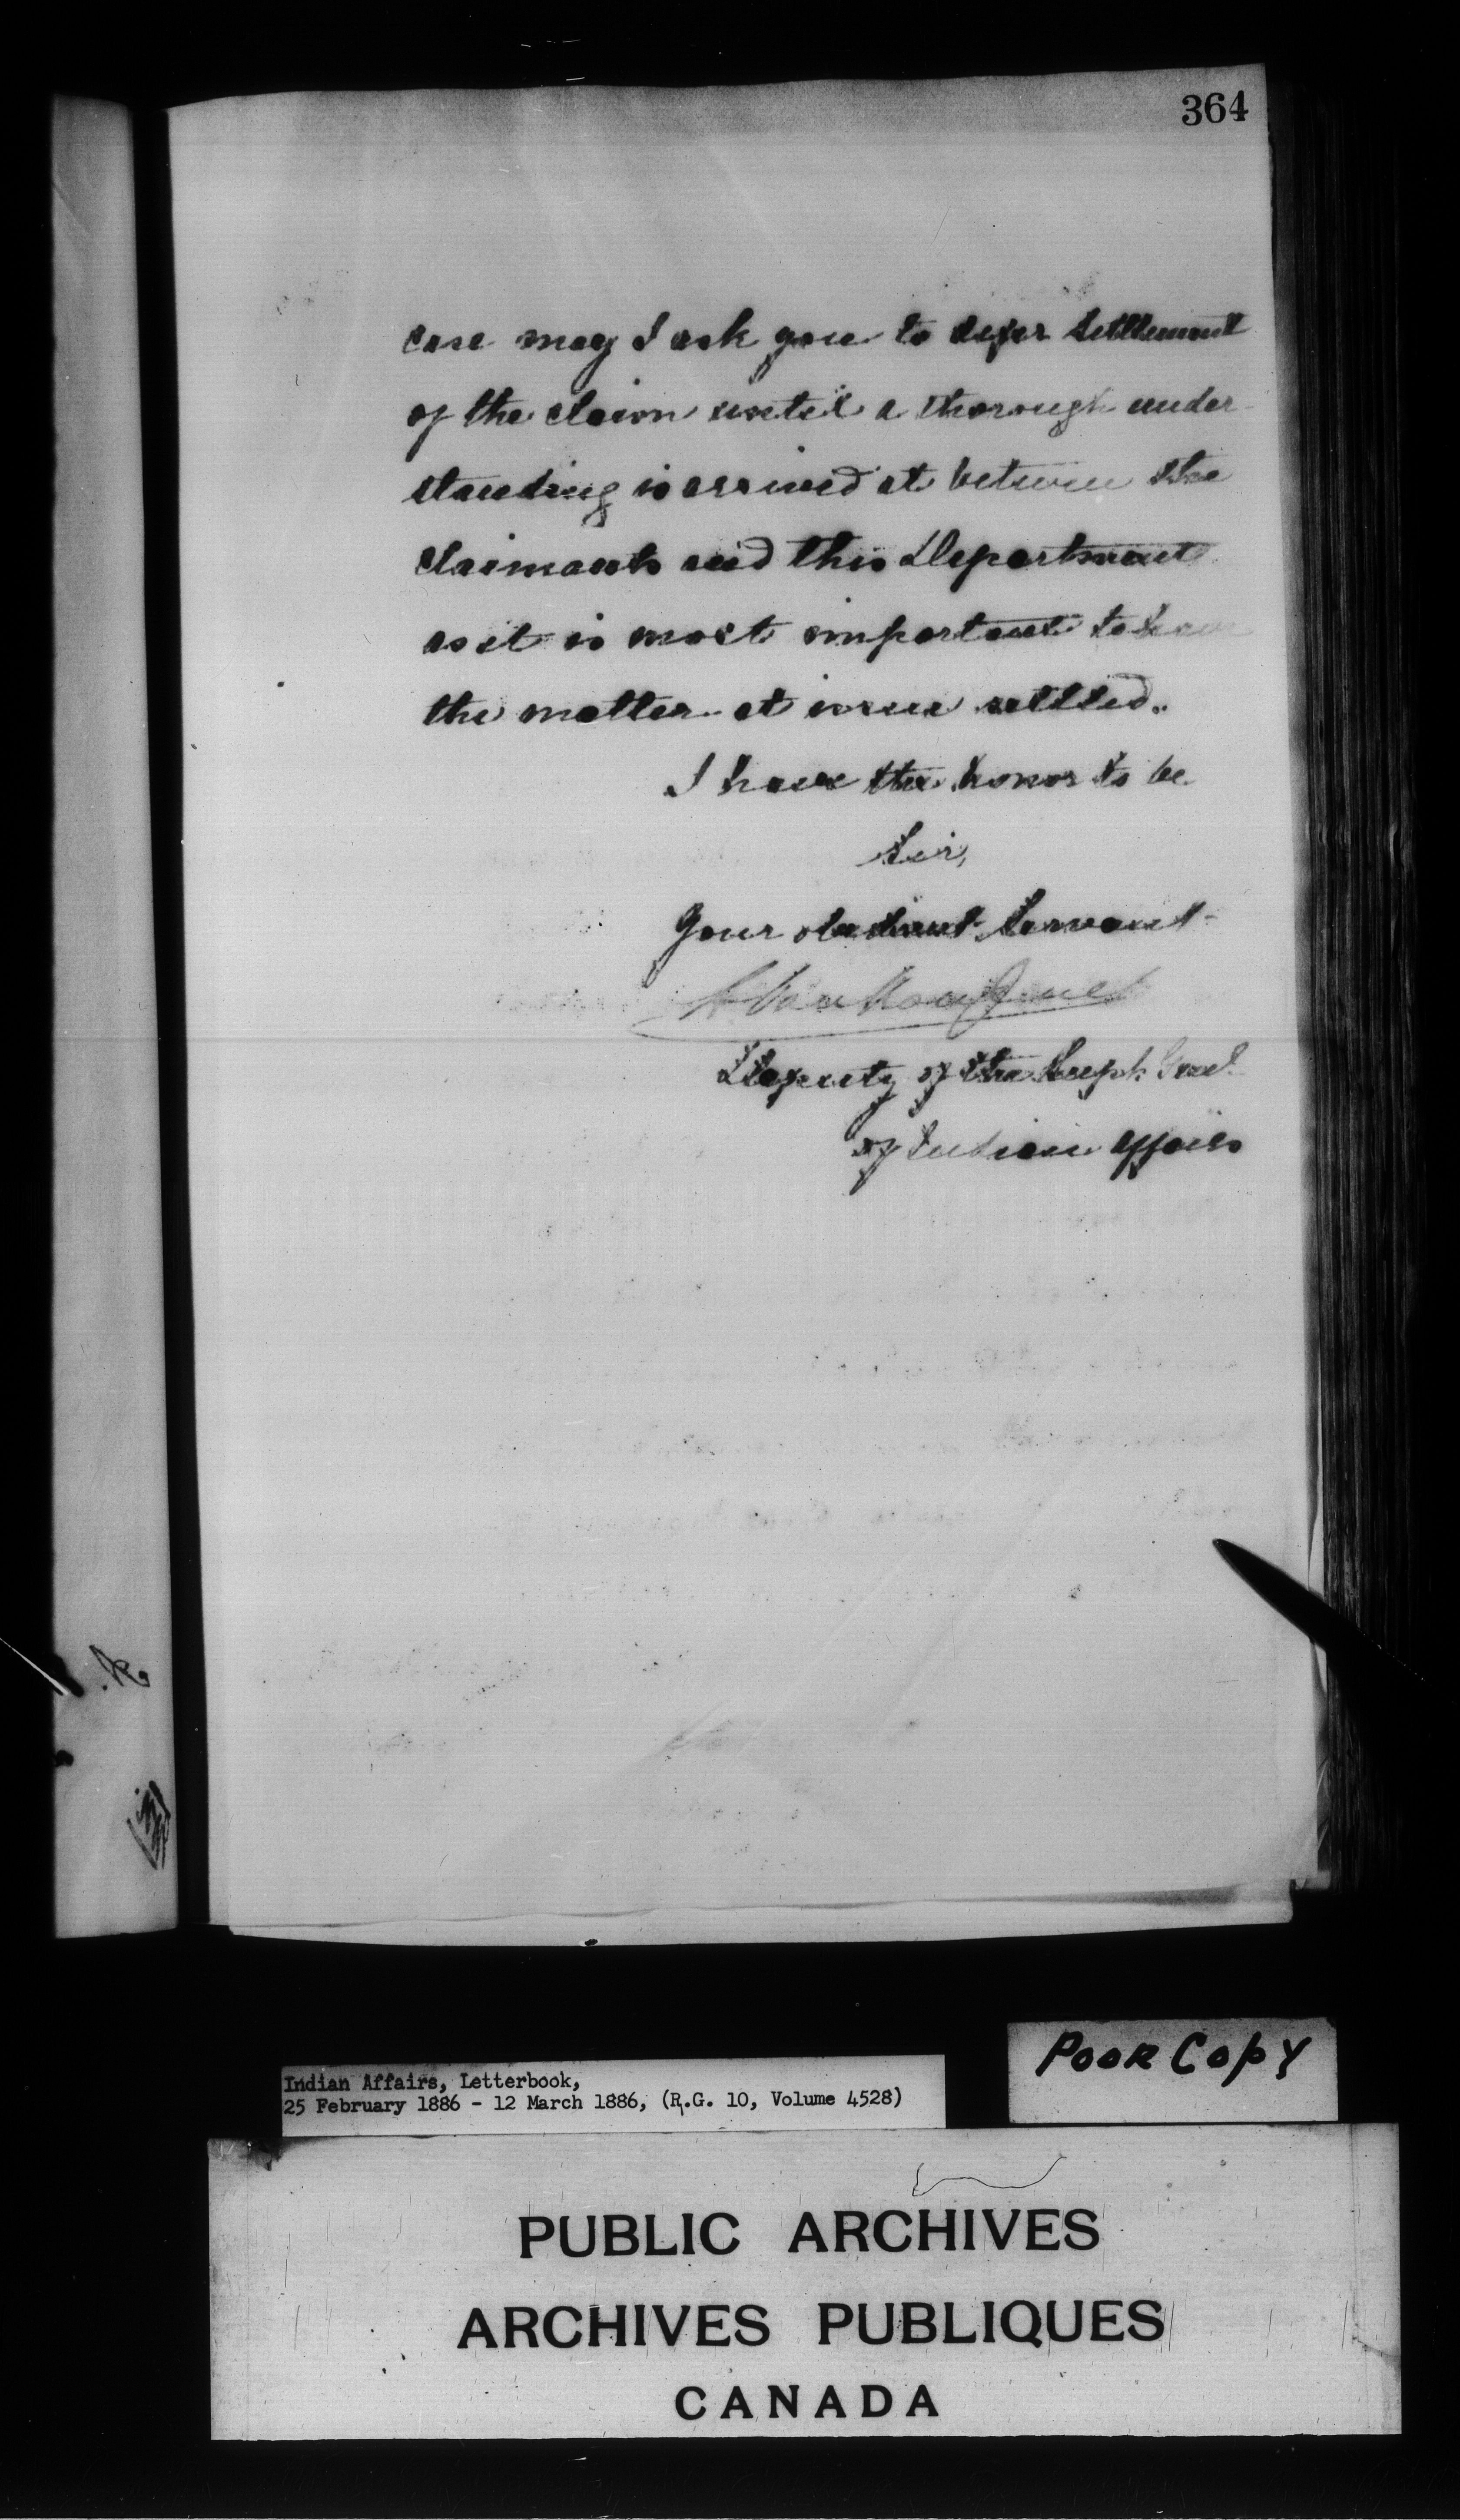 364
case may I ask you to defer settlement
of the claim until a thorough under-
standing is arrived at between the
claimants and this Department
as it is most important to have
the matter at issue settled.
I have the honor to be
Sir,
Your obedient Servant
L. Vankoughnet
Deputy of the Supt. Genl
of Indian Affairs
Poor Copy
Indian Affairs, Letterbook,
25 February 1886 - 12 March 1886, (R.G. 10, Volume 4528)
PUBLIC ARCHIVES
ARCHIVES PUBLIQUES
CANADA